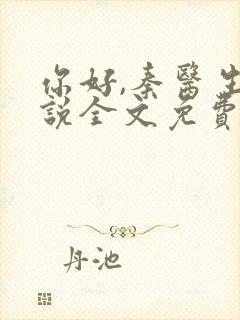 你好,秦醫生
說全文免費
丹池